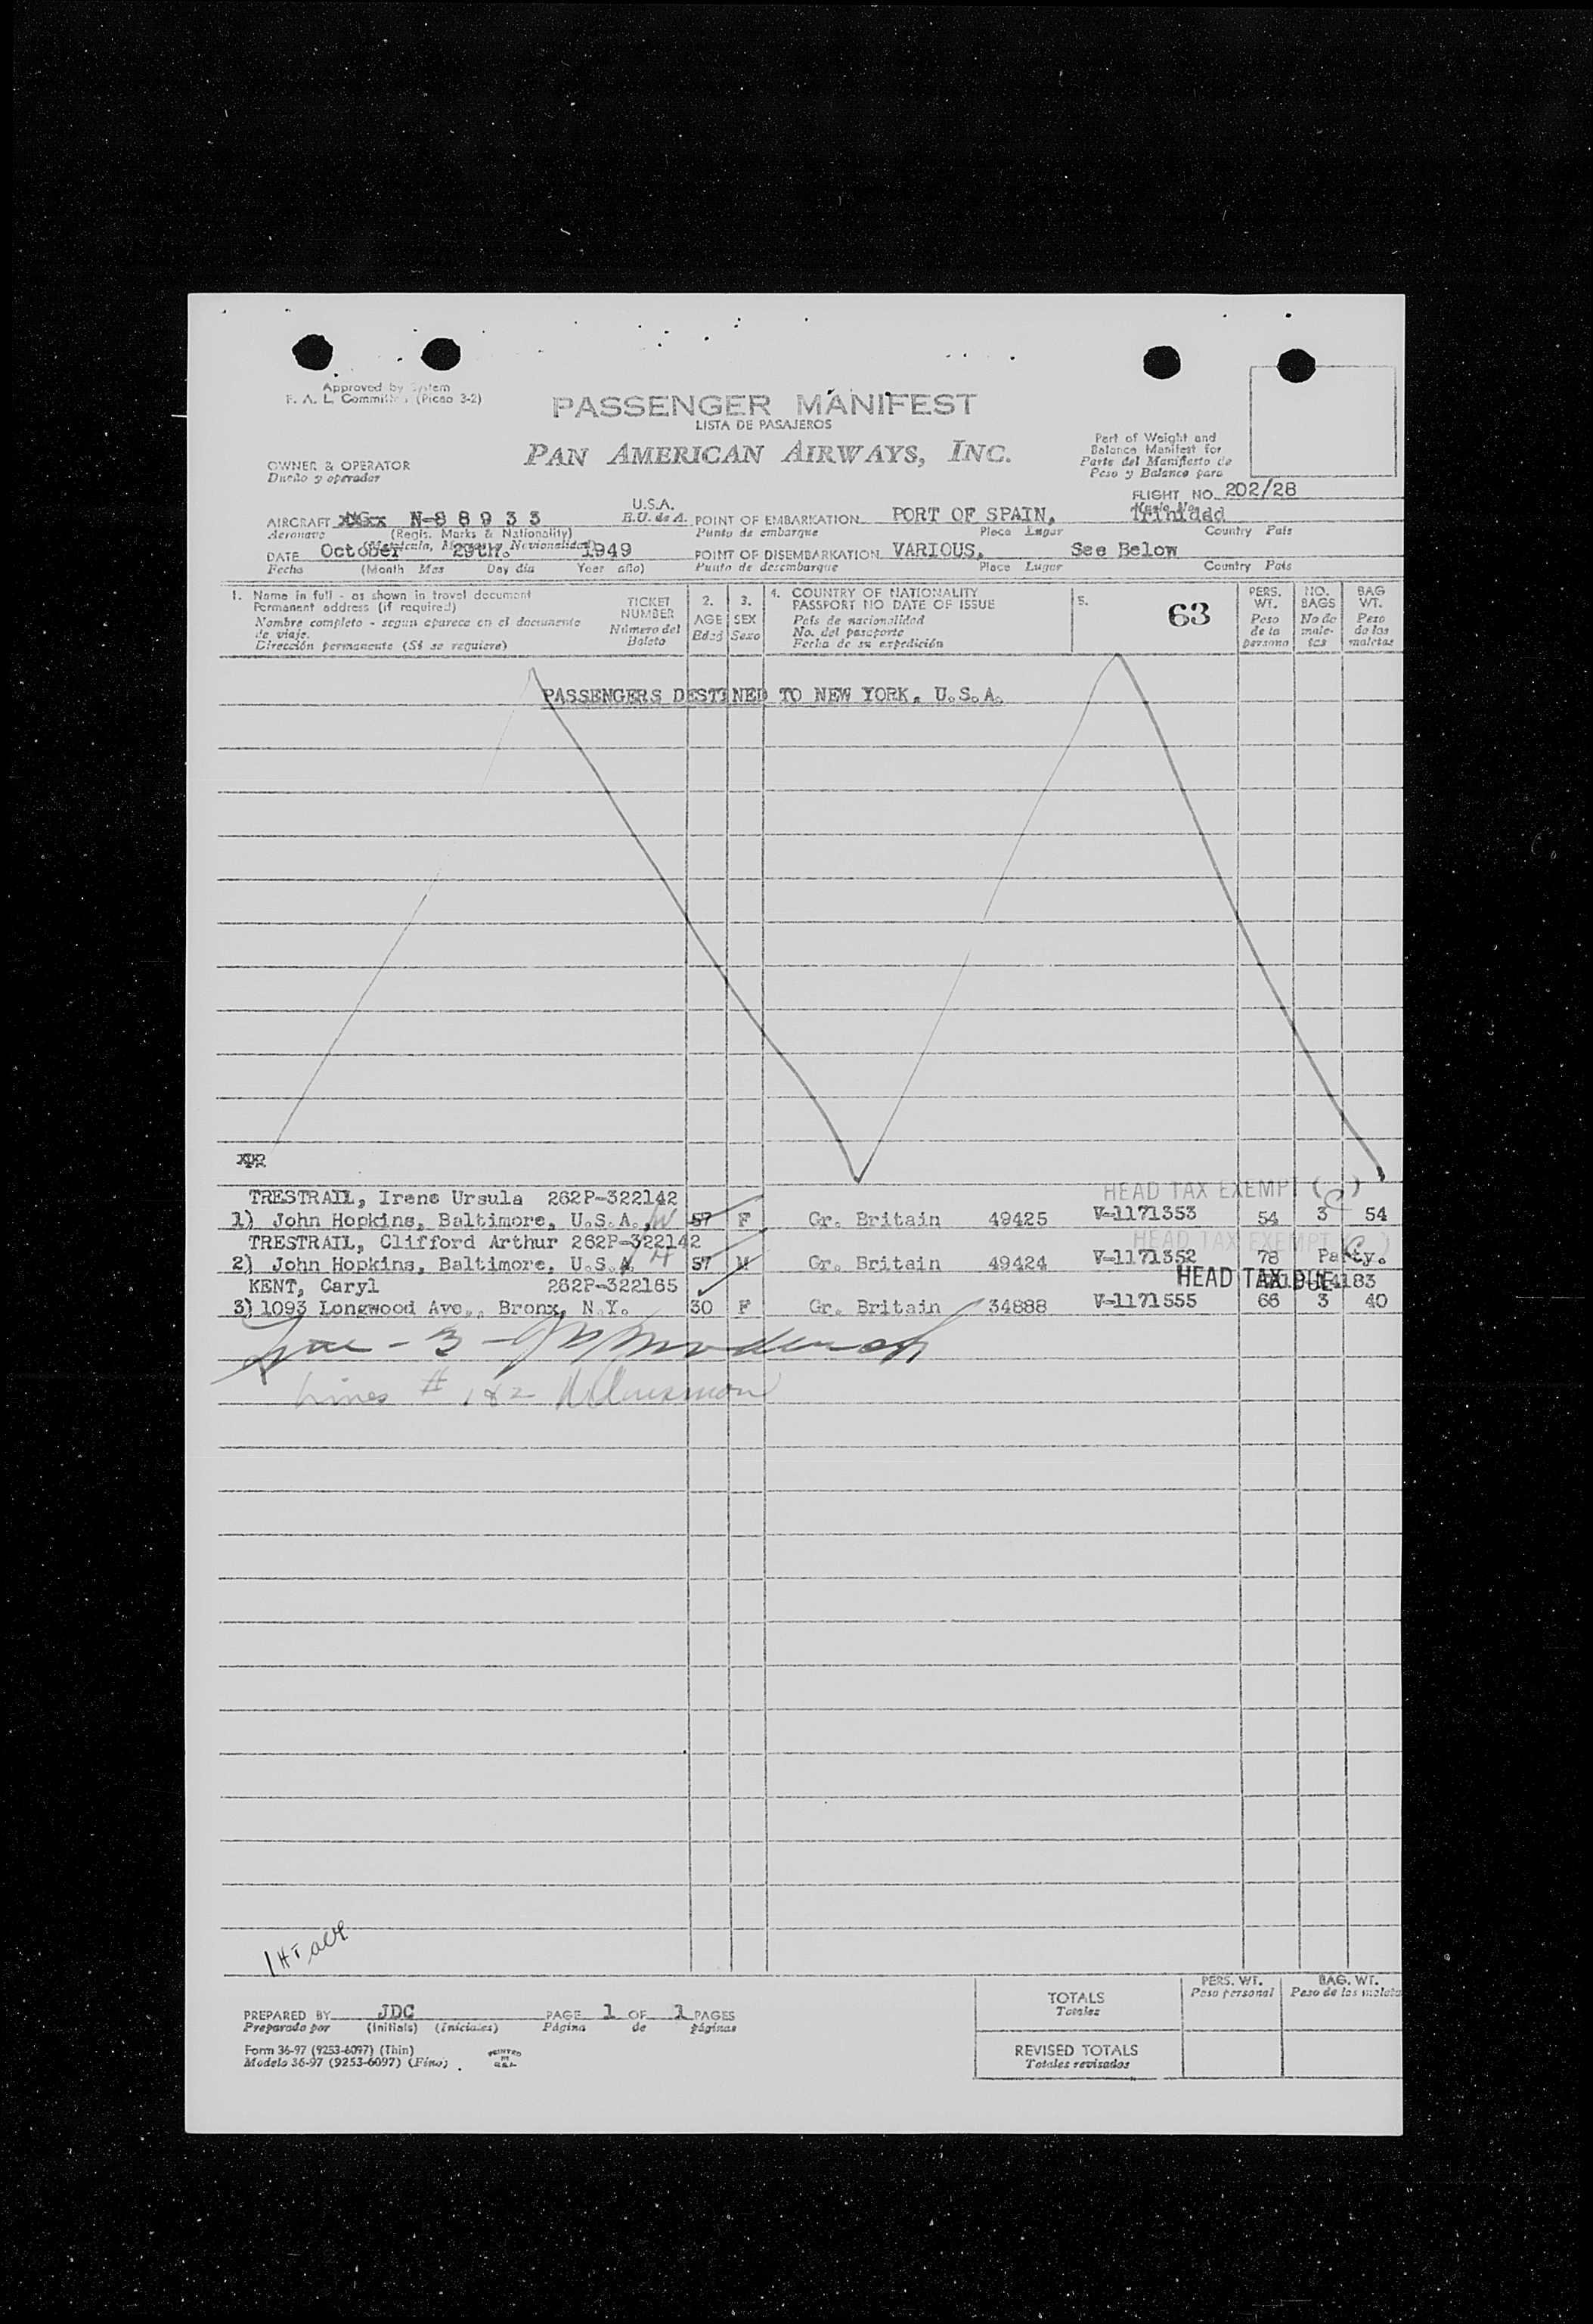 Approved by System
F. A. L. Committee (Picao 3-2)
PASSENGER MANIFEST
LISTA DE PASAJEROS
PAN AMERICAN AIRWAYS, INC.
Part of Weight and
Balance Manifest for
Parte del Manifiesto de
Peso y Balance para
OWNER & OPERATOR
Dueño y operador
FLIGHT NO. 202/28
Vuelo No.
AIRCRAFT N-8 8 9 3 3 U.S.A. POINT OF EMBARKATION PORT OF SPAIN, Trinidad
Aeronave (Regis. Marks & Nationality) E.U. de A. Punto de embarque Place Lugar Country País
DATE October 29th. 1949 POINT OF DISEMBARKATION VARIOUS, See Below
Fecha (Month Mes Day día Year año) Punto de desembarque Place Lugar Country País
1. Name in full - as shown in travel document
Permanent address (if required)
Nombre completo - segun aparece en el documento
de viaje.
Dirección permanente (Si se requiere)
TICKET
NUMBER
Número del
Boleto
2.
AGE
Edad
3.
SEX
Sexo
4. COUNTRY OF NATIONALITY
PASSPORT NO DATE OF ISSUE
País de nacionalidad
No. del pasaporte
Fecha de su expedición
5.
63
PERS.
WT.
Peso
de la
persona
NO.
BAGS
No de
male-
tas
BAG
WT.
Peso
de las
maletas
PASSENGERS DESTINED TO NEW YORK, U.S.A.
HEAD TAX EXEMPT (C)
TRESTRAIL, Irene Ursula 262P-322142
1) John Hopkins, Baltimore, U.S.A., W 57 F Gr. Britain 49425 V-1171353 54 3 54
TRESTRAIL, Clifford Arthur 262P-322142 HEAD TAX EXEMPT (C)
2) John Hopkins, Baltimore, U.S.A. H 57 M Gr. Britain 49424 V-1171352 78 Party.
KENT, Caryl 262P-322165 HEAD TAX DUE 4183
3) 1093 Longwood Ave., Bronx, N.Y. 30 F Gr. Britain 34888 V-1171555 66 3 40
Line - 3 -
Lines # 1 & 2
1 HT
TOTALS
Totales
PERS. WT.
Peso personal
BAG. WT.
Peso de las maletas
PREPARED BY JDC PAGE 1 OF 1 PAGES
Preparado por (Initials) (Iniciales) Página de páginas
REVISED TOTALS
Totales revisados
Form 36-97 (9253-6097) (Thin)
Modelo 36-97 (9253-6097) (Fino)
PRINTED
IN
U.S.A.